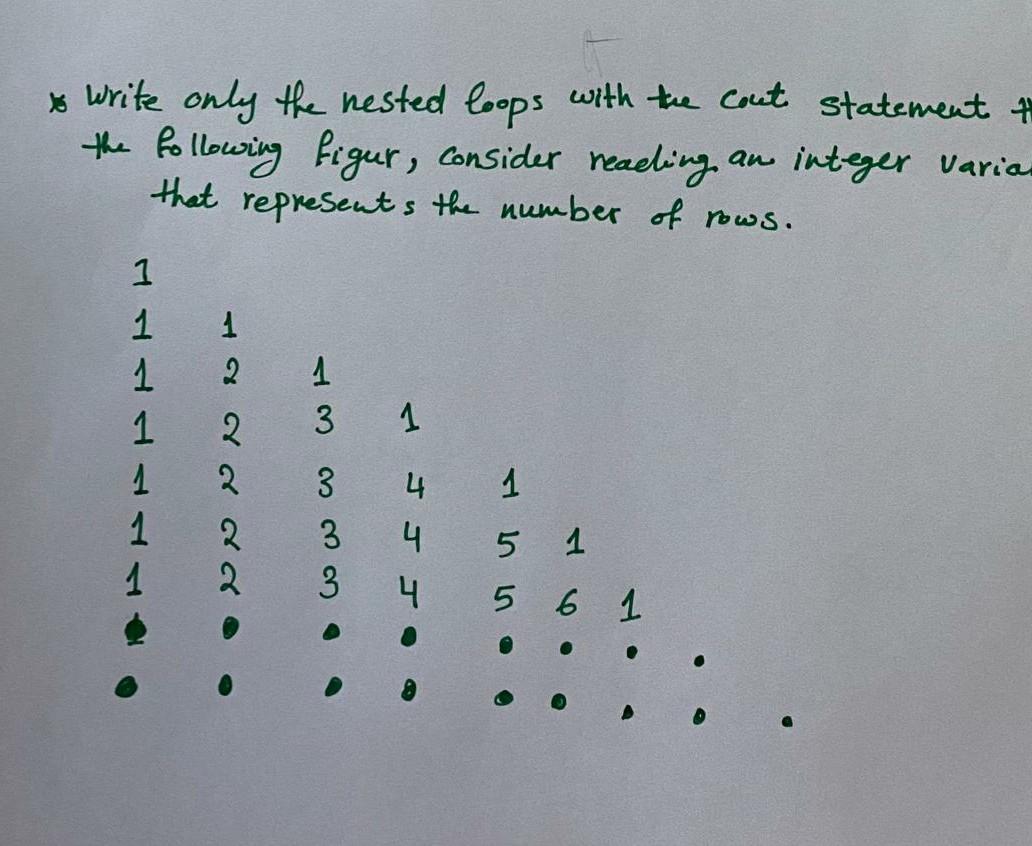 * Write only the nested loops with the cout statement
the following figur, consider reading an integer
that represents the number of rows.
1
1 1
1 2 1
1 2 3 1
1 2 3 4 1
1 2 3 4 5 1
1 2 3 4 5 6 1
. . . . . . . .
. . . . . . . . .